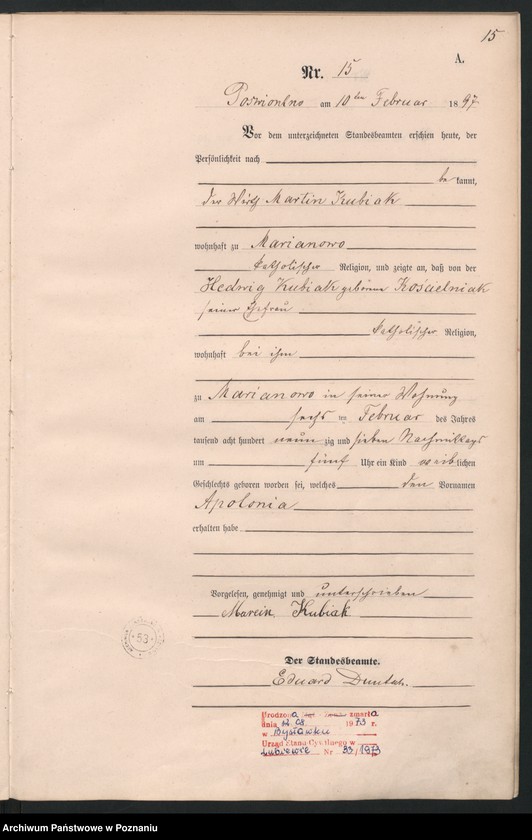 15
A.
Nr. 15
am 10ten Februar 1897
Vor dem unterzeichneten Standesbeamten erschien heute, der
Persönlichkeit nach
be kannt,
der Wirth Martin Kubiak
wohnhaft zu Marianowo
katholischer Religion, und zeigte an, daß von der
Hedwig Kubiak geborene Kościelniak
seiner Ehefrau
katholischer Religion,
wohnhaft bei ihm
zu Marianowo in seiner Wohnung
am sechs ten Februar des Jahres
tausend acht hundert neun zig und sieben Nachmittags
um fünf Uhr ein Kind weiblichen
Geschlechts geboren worden sei, welches den Vornamen
Apolonia
erhalten habe
Vorgelesen, genehmigt und unterschrieben
Marcin Kubiak
Der Standesbeamte.
Eduard
53
Urodzona zmarła
dnia 1973 r.
w
Urząd Stanu Cywilnego w
Nr 33/1973
Archiwum Państwowe w Poznaniu